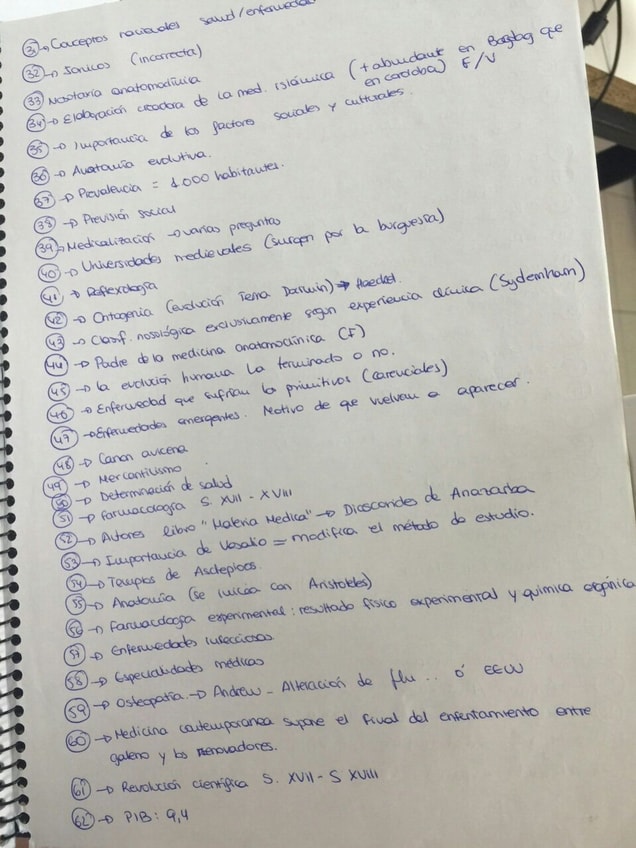 31 → Conceptos racionales salud/enfermedad
32 → Jónicos (incorrecta)
33 anatomoclínica
34 → Elaboración creadora de la med. islámica (+ abundante en Bagdag que
en cordoba) F/V
35 → Importancia de los factores sociales y culturales.
36 → Anatomía evolutiva.
37 → Prevalencia = 1.000 habitantes.
38 → Previsión social
39 → Medicalización → varias preguntas
40 → Universidades medievales (surgen por la burguesía)
41 → Reflexología
42 → Ontogenia (evolución Darwin) → Haeckel.
43 → Clasif. nosológica exclusivamente según experiencia clínica (Sydemham)
44 → Padre de la medicina anatomoclínica (F)
45 → la evolución humana ha terminado o no.
46 → Enfermedad que sufrían los primitivos (carenciales)
47 → Enfermedades emergentes. Motivo de que vuelvan a aparecer.
48 → Canon avicena
49 → Mercantilismo
50 → Determinación de salud
51 → farmacología S. XVII - XVIII
52 → Autores libro "Materia Medica" → Dioscorides de Anazarba
53 → Importancia de Vesalio = modifica el método de estudio.
54 → Templos de Asclepios.
55 → Anatomía (se inicia con Aristóteles)
56 → Farmacología experimental: resultado físico experimental y química orgánica
57 → Enfermedades infecciosas
58 → Especialidades médicas
59 → Osteopatía → Andrew - Alteración de flu.. ó EEUU
60 → Medicina contemporanea supone el final del enfentamiento entre
galeno y los renovadores.
61 → Revolución científica S. XVII - S XVIII
62 → PIB: 9,4